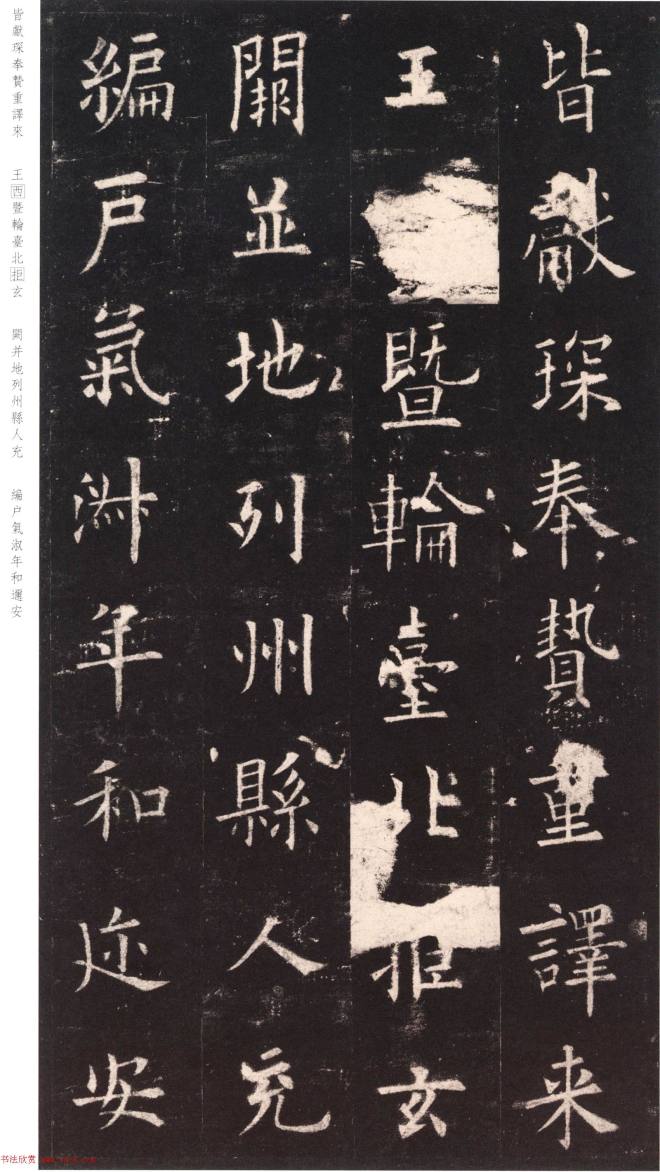 皆獻琛奉贄重譯来
王暨輪臺北拒玄
闕並地列州縣人充
編戶氣淑年和迩安
皆獻琛奉贄重譯來　王西暨輪臺北拒玄　闕并地列州縣人充　編户氣淑年和邇安
书法欣赏